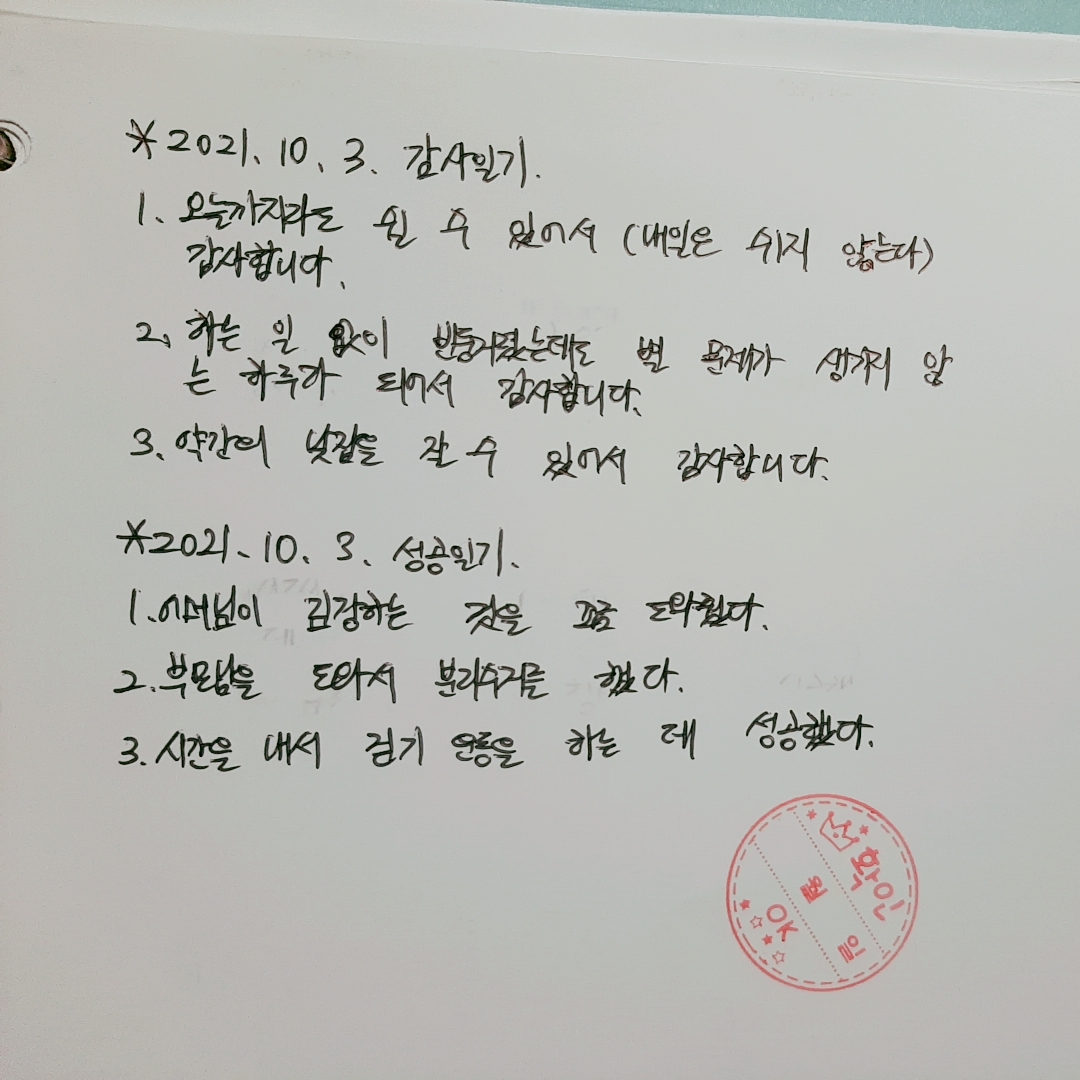 *2021. 10. 3. 감사일기.
1. 오늘까지라도 쉴 수 있어서 (내일은 쉬지 않는다)
감사합니다.
2. 하는 일 없이 빈둥거렸는데도 별 문제가 생기지 않
는 하루가 되어서 감사합니다.
3. 약간의 낮잠을 잘 수 있어서 감사합니다.
*2021. 10. 3. 성공일기.
1. 어머님이 김장하는 것을 조금 도와줬다.
2. 부모님을 도와서 분리수거를 했다.
3. 시간을 내서 걷기 운동을 하는 데 성공했다.
확인
월 일
OK